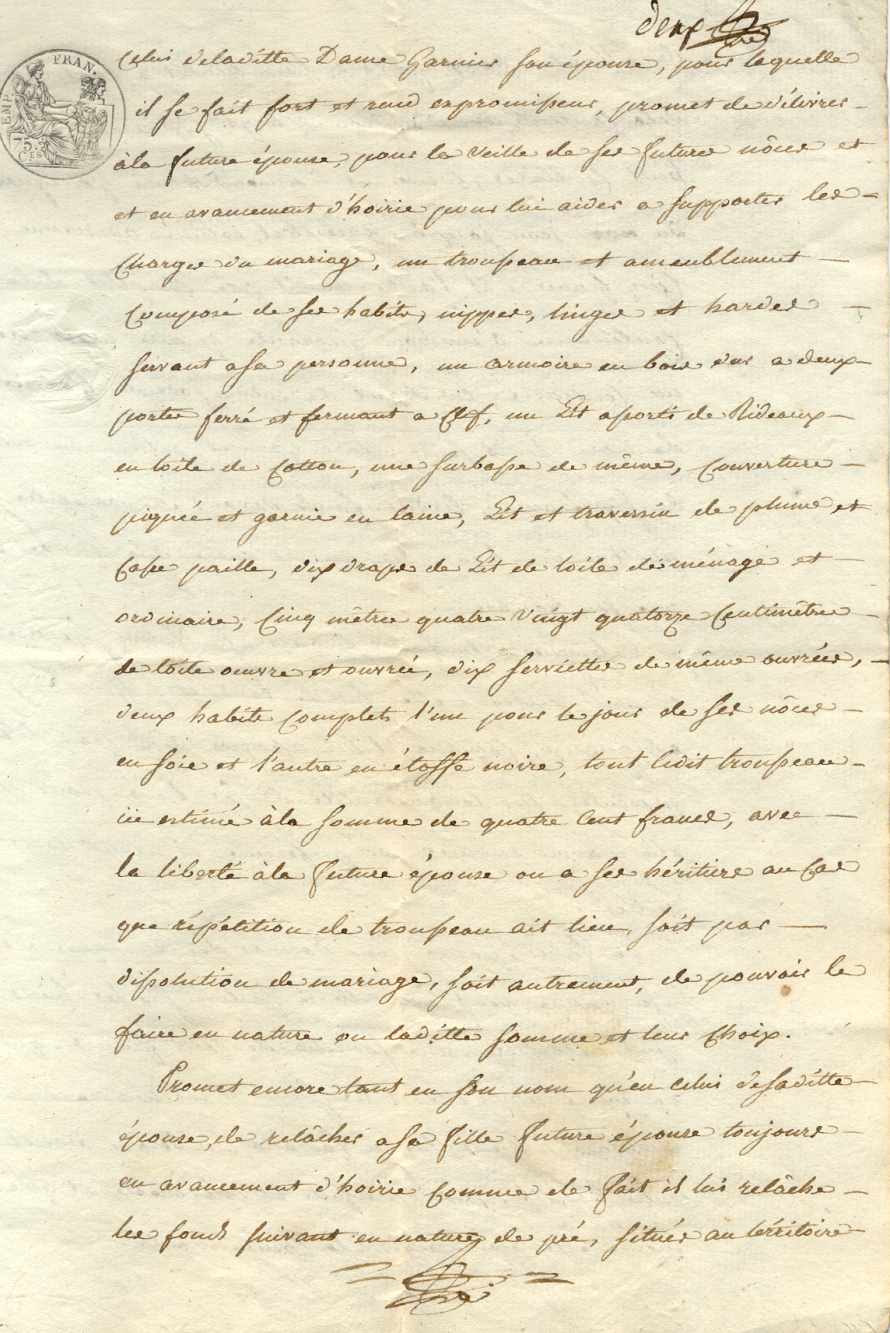 deux
EMP. FRAN.
75 C.ES
Celui deladitte Dame Garnier son épouse, pour laquelle
il se fait fort et rend expromisseur, promet de délivrer
à la future épouse, pour la veille de ses future nôces et
et en avancement d'hoirie pour lui aider a supporter les
Charges du mariage, un trousseau et ameublement
Composé de ses habits, nippes, linges et hardes
servant a sa personne, un armoire en bois dur a deux
portes ferré et fermant a Clef, un Lit aporti de Rideaux
en toile de Cotton, une surbasse de même, Couverture
piquée et garnie en laine, Lit et traversin de plume et
Casse paille, dix draps de Lit de toile de ménage et
ordinaire, Cinq mètres quatre vingt quatorze Centimètres
de toile œuvre et ouvrée, dix serviettes de même ouvrées,
deux habits Complets l'un pour le jour de ses nôces
en soie et l'autre en étoffe noire, tout ledit trousseau
ici estimé à la somme de quatre Cent francs, avec
la liberté à la future épouse ou a ses héritiers au Cas
que répétition de trousseau ait lieu, soit par
dissolution de mariage, soit autrement, de pouvoir le
faire en nature ou laditte somme et leur Choix.
Promet encore tant en son nom qu'en Celui desaditte
épouse, de relâcher a sa fille future épouse toujours
en avancement d'hoirie Comme de fait il lui relâche
les fonds suivant en nature de pré, situés au térritoire